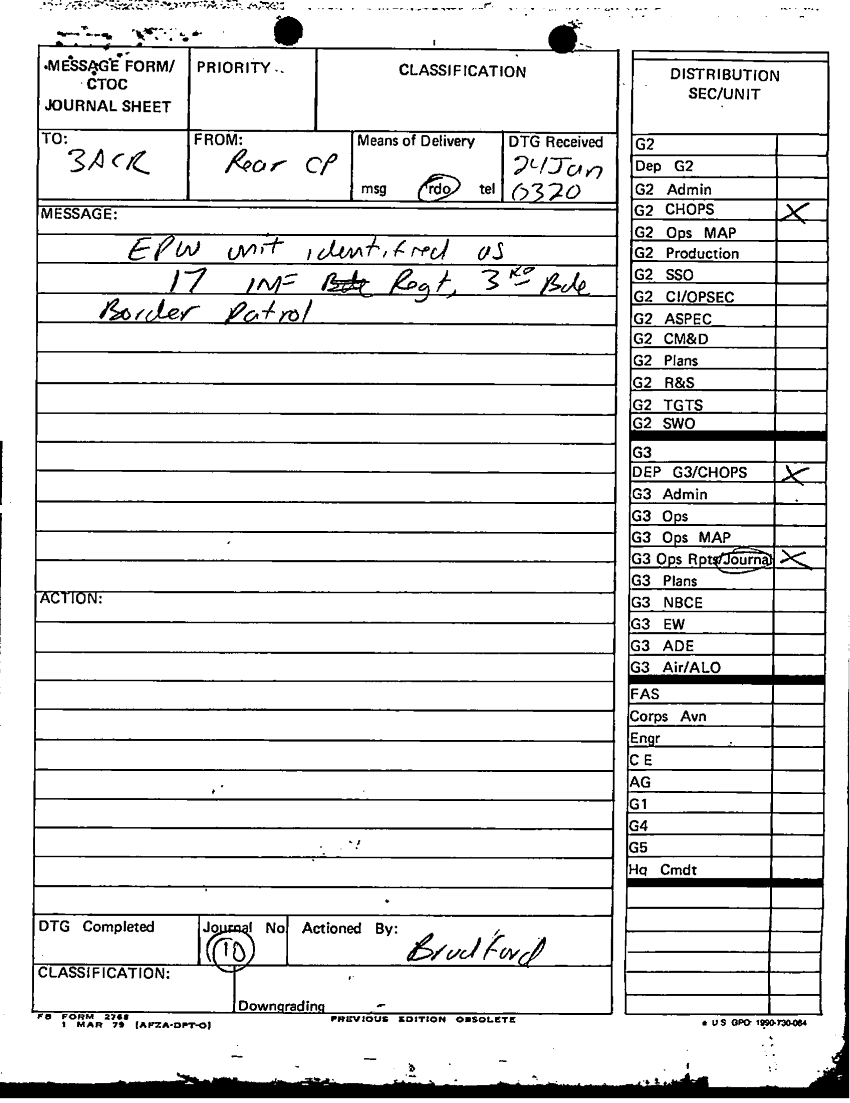 MESSAGE FORM/
CTOC
JOURNAL SHEET
PRIORITY
CLASSIFICATION
TO:
3ACR
FROM:
Rear CP
Means of Delivery
msg rdo tel
DTG Received
24Jan
0320
MESSAGE:
EPW unit identified as
17 INF Bde Regt, 3RD Bde
Border Patrol
ACTION:
DTG Completed
Journal No
10
Actioned By:
Bradford
CLASSIFICATION:
Downgrading
FB FORM 2768
1 MAR 79 (AFZA-DPT-O)
PREVIOUS EDITION OBSOLETE
DISTRIBUTION
SEC/UNIT
G2
Dep G2
G2 Admin
G2 CHOPS X
G2 Ops MAP
G2 Production
G2 SSO
G2 CI/OPSEC
G2 ASPEC
G2 CM&D
G2 Plans
G2 R&S
G2 TGTS
G2 SWO
G3
DEP G3/CHOPS X
G3 Admin
G3 Ops
G3 Ops MAP
G3 Ops Rpts/Journal X
G3 Plans
G3 NBCE
G3 EW
G3 ADE
G3 Air/ALO
FAS
Corps Avn
Engr
C E
AG
G1
G4
G5
Hq Cmdt
U S GPO: 1990-730-084